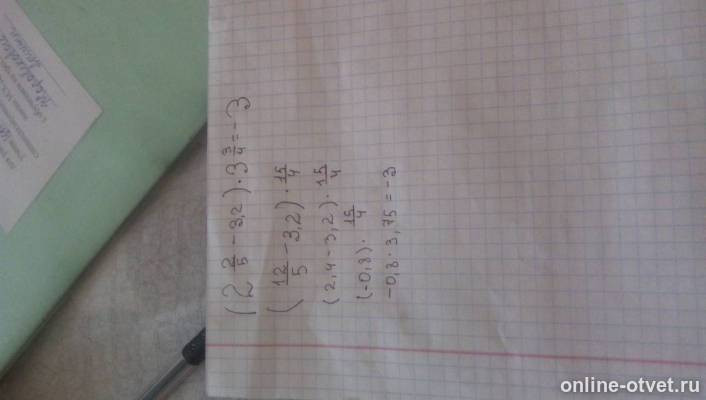 (2 2/5 - 3,2) · 3 3/4 = -3
(12/5 - 3,2) · 15/4
(2,4 - 3,2) · 15/4
(-0,8) · 15/4
-0,8 · 3,75 = -3
online-otvet.ru